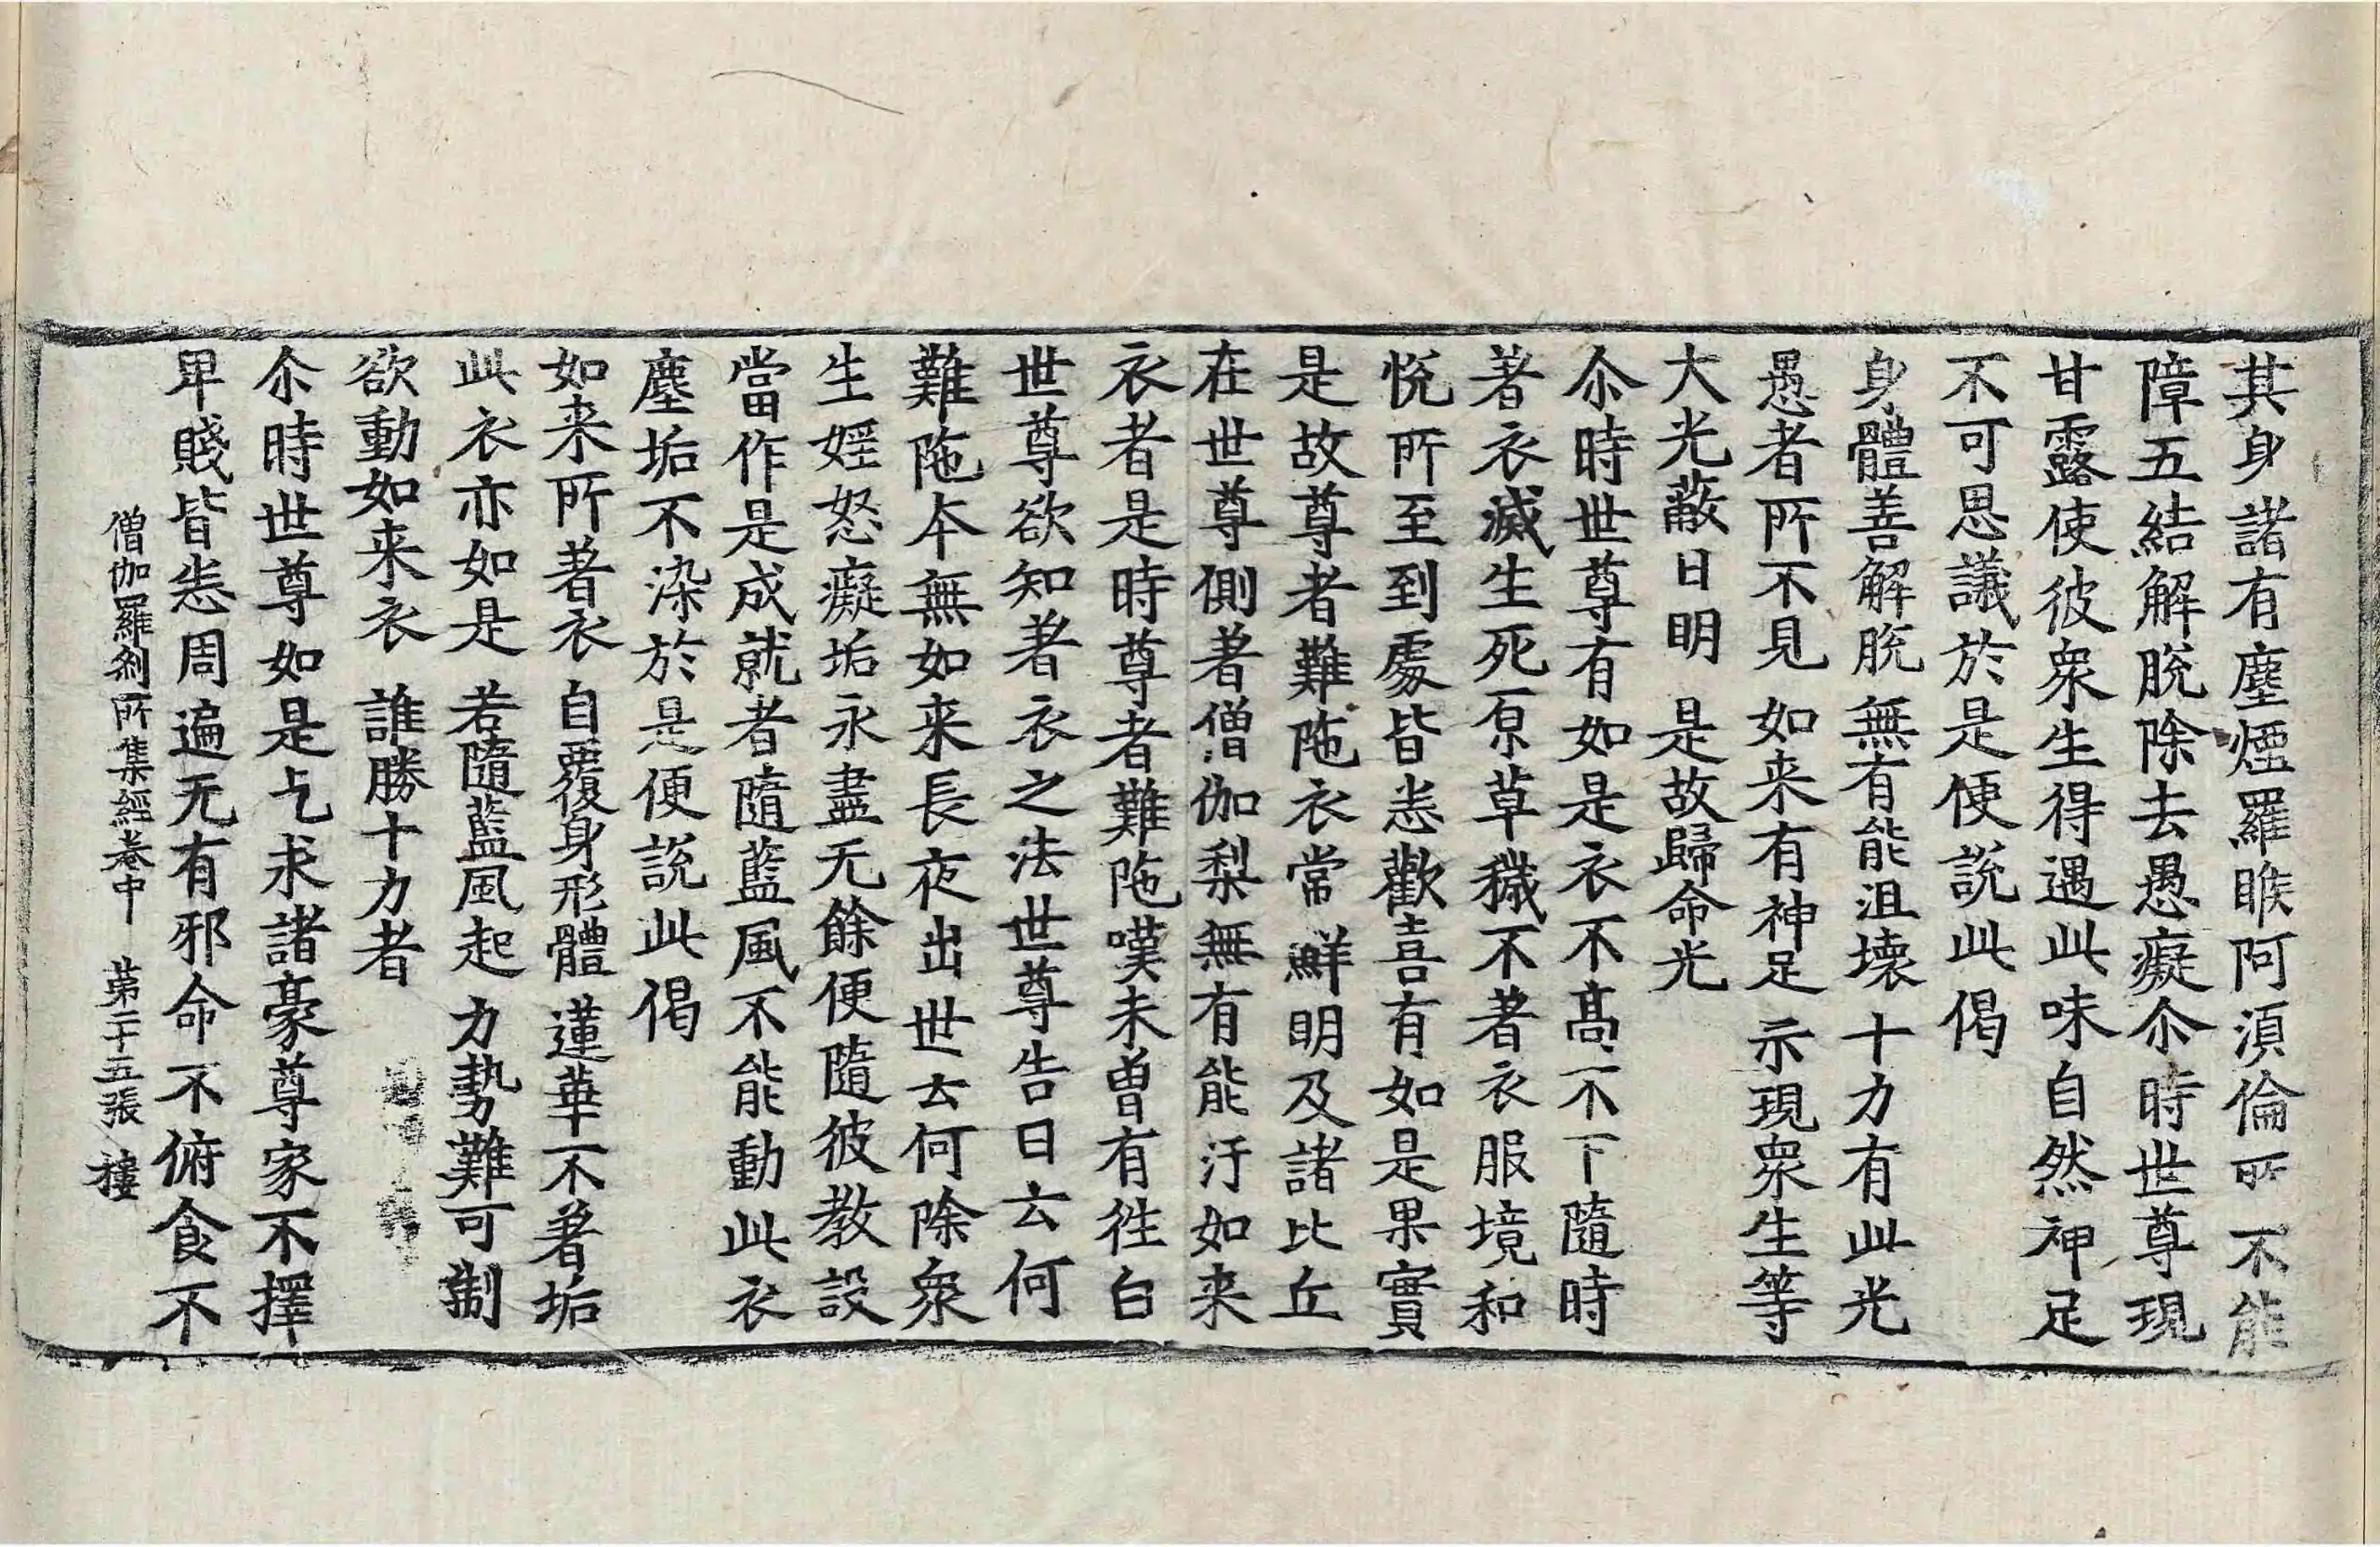 其身諸有塵煙羅睺阿須倫所不能
障五結解脫除去愚癡尒時世尊現
甘露使彼衆生得遇此味自然神足
不可思議於是便說此偈
身體善解脫 無有能沮壊 十力有此光
愚者所不見 如来有神足 示現衆生等
大光蔽日明 是故歸命光
尒時世尊有如是衣不高不下隨時
著衣滅生死原草穢不著衣服境和
悅所至到處皆悉歡喜有如是果實
是故尊者難陁衣常鮮明及諸比丘
在世尊側著僧伽梨無有能汙如来
衣者是時尊者難陁嘆未曽有往白
世尊欲知著衣之法世尊告曰云何
難陁本無如来長夜出世云何除衆
生婬怒癡垢永盡无餘便隨彼教設
當作是成就者隨藍風不能動此衣
塵垢不染於是便說此偈
如来所著衣 自覆身形體 蓮華不著垢
此衣亦如是 若隨藍風起 力勢難可制
欲動如来衣 誰勝十力者
尒時世尊如是乞求諸豪尊家不擇
卑賤皆悉周遍无有邪命不俯食不
僧伽羅刹所集經卷中 第二十五張 樓